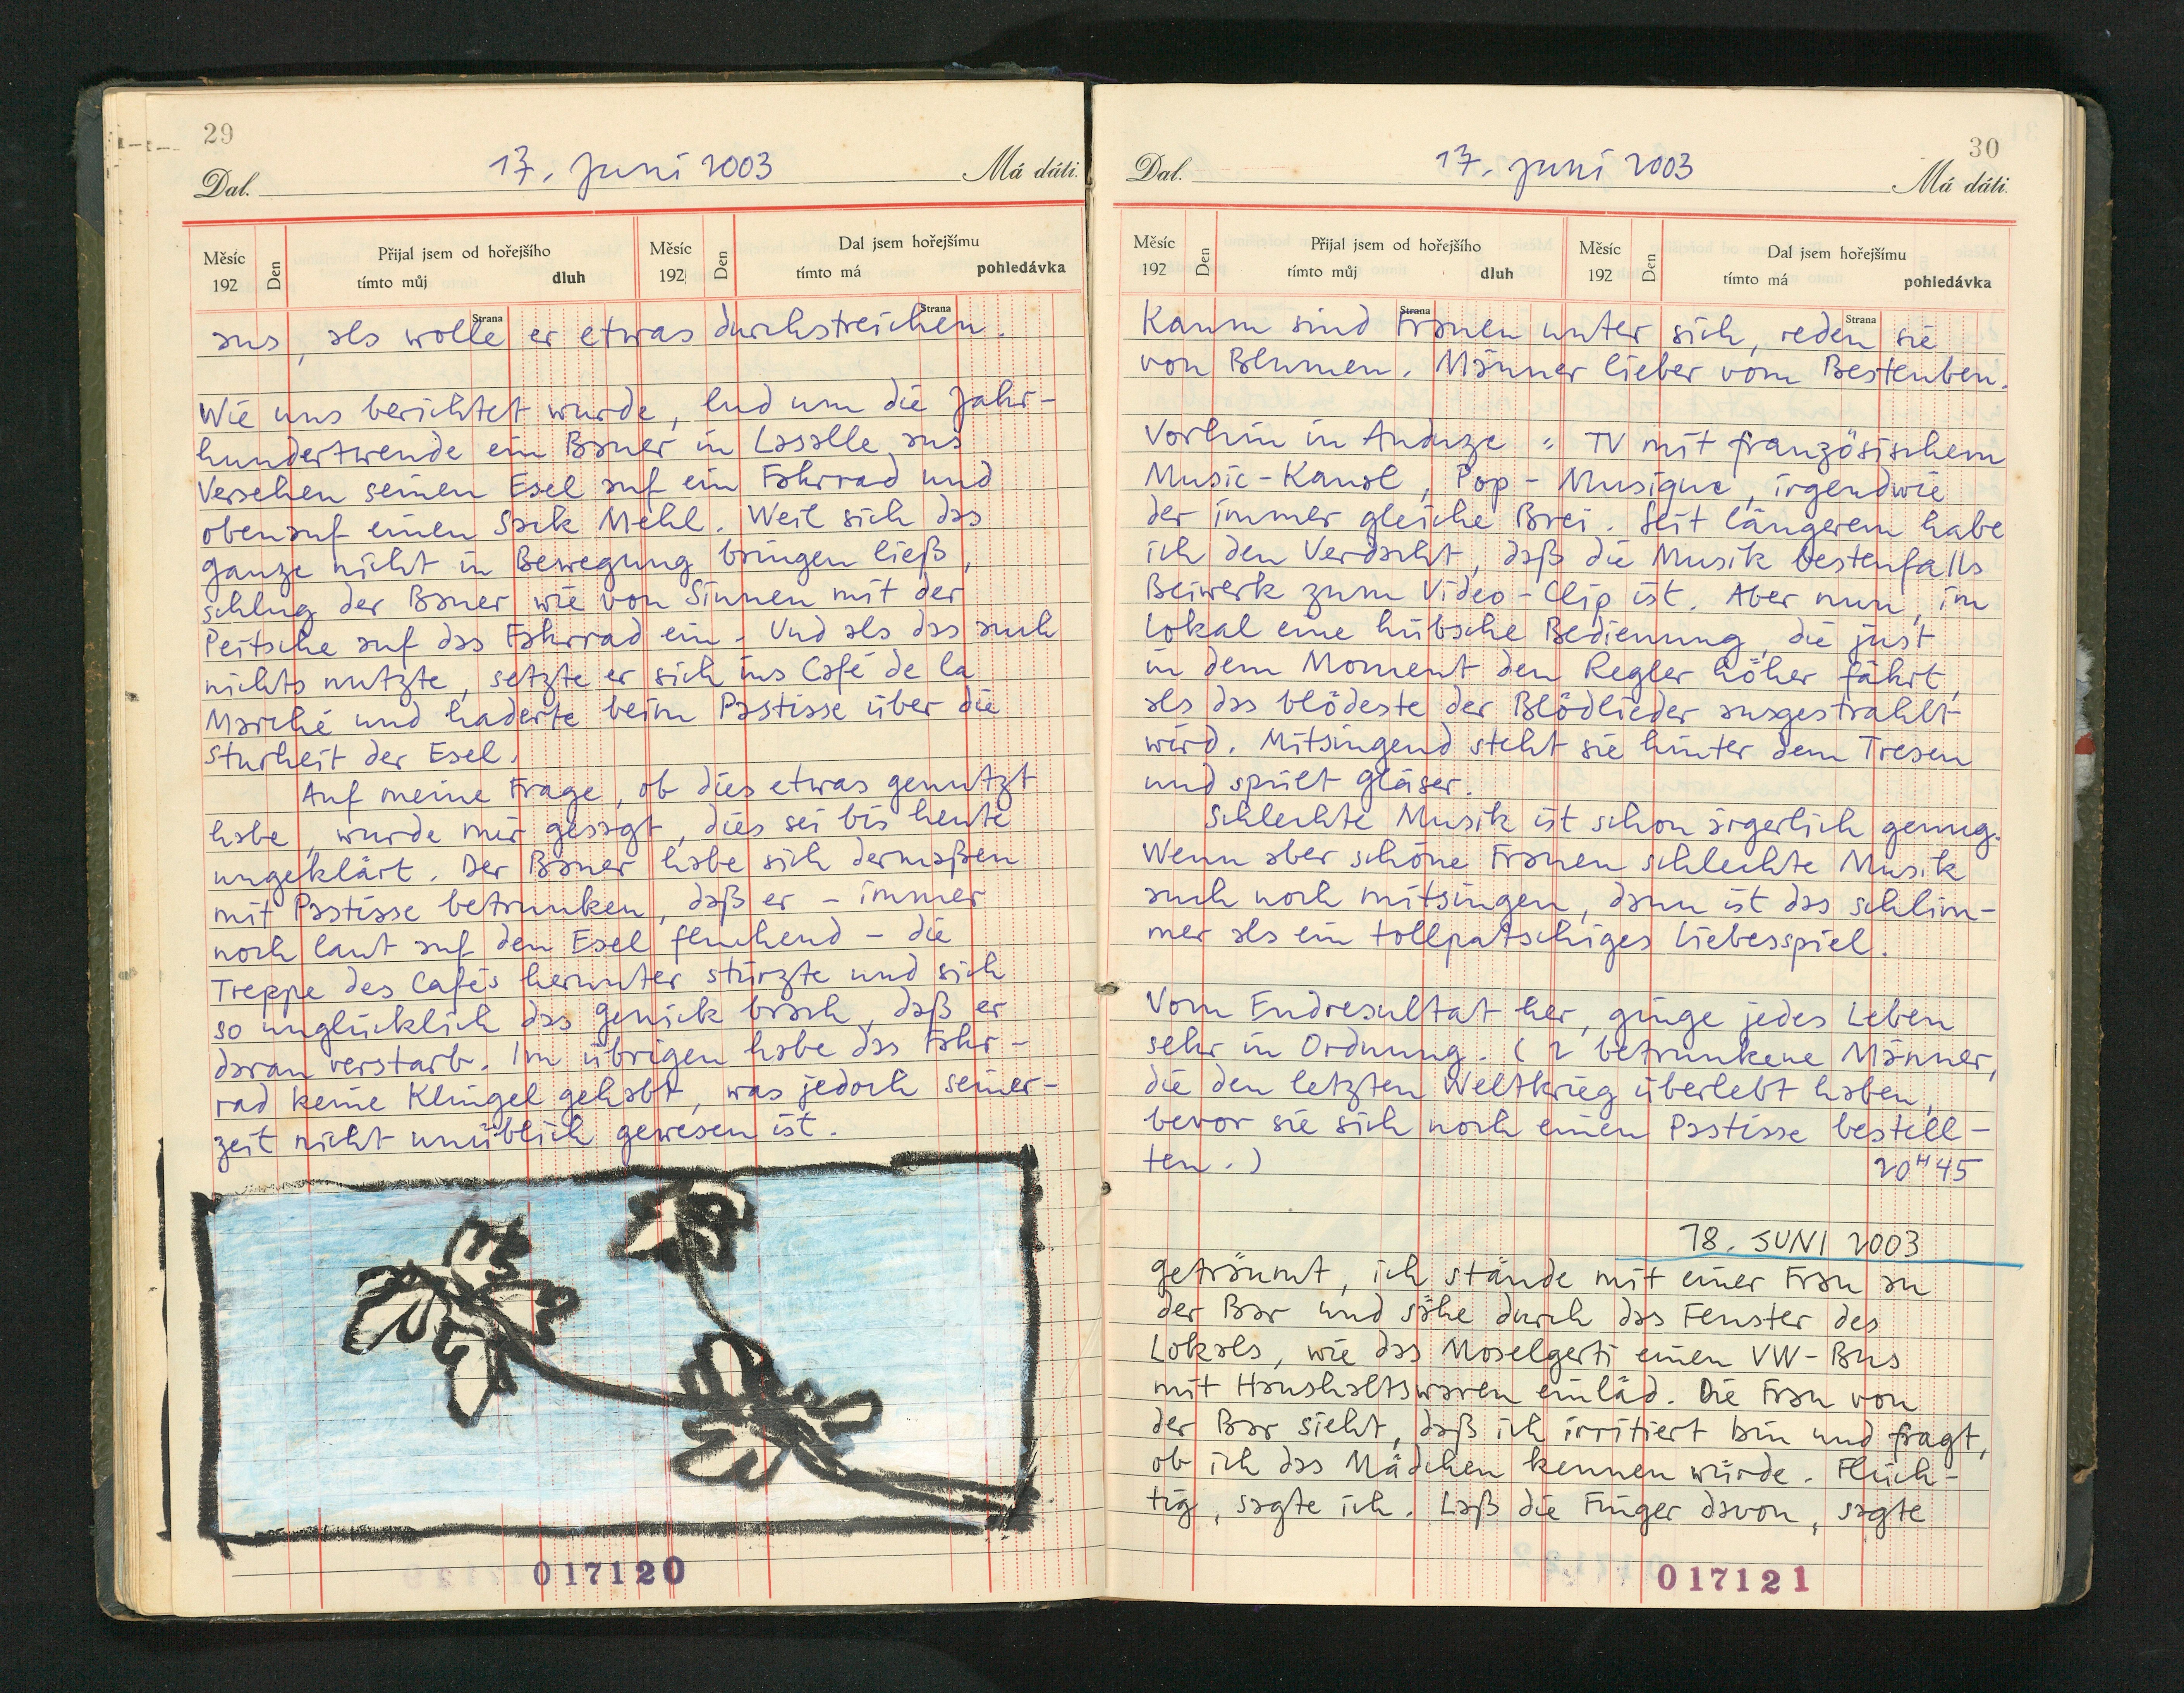 29
Dal. 17. Juni 2003 Má dáti.
Měsíc 192 Den Přijal jsem od hořejšího tímto můj dluh Měsíc 192 Den Dal jsem hořejšímu tímto má pohledávka
Strana Strana
aus, als wolle er etwas durchstreichen.
Wie uns berichtet wurde, lud um die Jahr-
hundertwende ein Bauer in Lasalle aus
Versehen seinen Esel auf ein Fahrrad und
obenauf einen Sack Mehl. Weil sich das
ganze nicht in Bewegung bringen ließ,
schlug der Bauer wie von Sinnen mit der
Peitsche auf das Fahrrad ein. Und als das auch
nichts nutzte, setzte er sich ins Café de la
Marché und haderte beim Pastisse über die
Sturheit der Esel.
Auf meine Frage, ob dies etwas genutzt
habe, wurde mir gesagt, dies sei bis heute
ungeklärt. Der Bauer habe sich dermaßen
mit Pastisse betrunken, daß er – immer
noch laut auf den Esel fluchend – die
Treppe des Cafés herunter stürzte und sich
so unglücklich das Genick brach, daß er
daran verstarb. Im übrigen habe das Fahr-
rad keine Klingel gehabt, was jedoch seiner-
zeit nicht unüblich gewesen ist.
017120
30
Dal. 17. Juni 2003 Má dáti.
Měsíc 192 Den Přijal jsem od hořejšího tímto můj dluh Měsíc 192 Den Dal jsem hořejšímu tímto má pohledávka
Strana Strana
Kaum sind Frauen unter sich, reden sie
von Blumen. Männer lieber vom Bestenben.
Vorhin in Anduze: TV mit französischem
Music-Kanal, Pop-Musique, irgendwie
der immer gleiche Brei. Seit längerem habe
ich den Verdacht, daß die Musik bestenfalls
Beiwerk zum Video-Clip ist. Aber nun, im
Lokal eine hübsche Bedienung, die just
in dem Moment den Regler höher fährt,
als das blödeste der Blödlieder ausgestrahlt
wird. Mitsingend steht sie hinter dem Tresen
und spült Gläser.
Schlechte Musik ist schon ärgerlich genug.
Wenn aber schöne Frauen schlechte Musik
auch noch mitsingen, dann ist das schlim-
mer als ein tollpatschiges Liebesspiel.
Vom Endresultat her, ginge jedes Leben
sehr in Ordnung. (2 betrunkene Männer,
die den letzten Weltkrieg überlebt haben,
bevor sie sich noch einen Pastisse bestell-
ten.) 20H45
18. JUNI 2003
geträumt, ich stände mit einer Frau an
der Bar und sähe durch das Fenster des
Lokals, wie das Moselgerti einen VW-Bus
mit Haushaltswaren einläd. Die Frau von
der Bar sieht, daß ich irritiert bin und fragt,
ob ich das Mädchen kennen würde. Flüch-
tig, sagte ich. Laß die Finger davon, sagte
017121